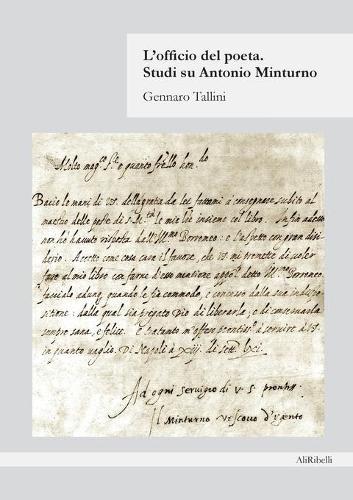 L'officio del poeta.
Studi su Antonio Minturno
Gennaro Tallini
Molto mag.co S.re quanto fr̃ello hon.do
Bacio le mani di VS. della grata da lei fattami à consegnare subito al
mastro delle poste di S. M.tà le mie l̃re insieme col libro. Infin adesso
non hò havuto risposta dall' Ill.mo Borromeo: e l'aspetto con gran disi-
derio. Accetto come cosa cara il favore, che VS. mi promette di voler
fare al mio libro con farne d'esso mentione appo detto Ill.mo Borromeo.
faccialo adunq quando le fia commodo, e concesso dalla sua indispo-
sitione: dalla qual sia pregato Dio di liberarla; e di conservarla
sempre sana, e felice. E tratanto m'offero prontiss.o à servire à VS.
in quanto vaglio. Di Napoli à xiij. di sett. lxi.
Ad ogni servigio di v. s. pronto
Il Minturno vescovo d'Ugento
AliRibelli